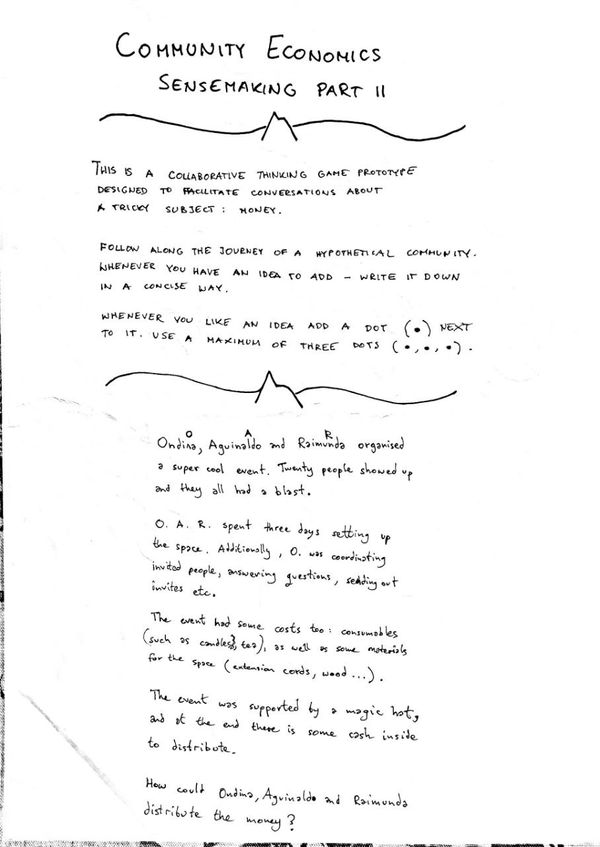 COMMUNITY ECONOMICS
SENSEMAKING PART II
THIS IS A COLLABORATIVE THINKING GAME PROTOTYPE
DESIGNED TO FACILITATE CONVERSATIONS ABOUT
A TRICKY SUBJECT: MONEY.
FOLLOW ALONG THE JOURNEY OF A HYPOTHETICAL COMMUNITY.
WHENEVER YOU HAVE AN IDEA TO ADD – WRITE IT DOWN
IN A CONCISE WAY.
WHENEVER YOU LIKE AN IDEA ADD A DOT (•) NEXT
TO IT. USE A MAXIMUM OF THREE DOTS (•,•,•).
O A R
Ondina, Aguinaldo and Raimunda organised
a super cool event. Twenty people showed up
and they all had a blast.
O. A. R. spent three days setting up
the space. Additionally, O. was coordinating
invited people, answering questions, sending out
invites etc.
The event had some costs too: consumables
(such as candles, tea), as well as some materials
for the space (extension cords, wood...).
The event was supported by a magic hat,
and at the end there is some cash inside
to distribute.
How could Ondina, Aguinaldo and Raimunda
distribute the money?